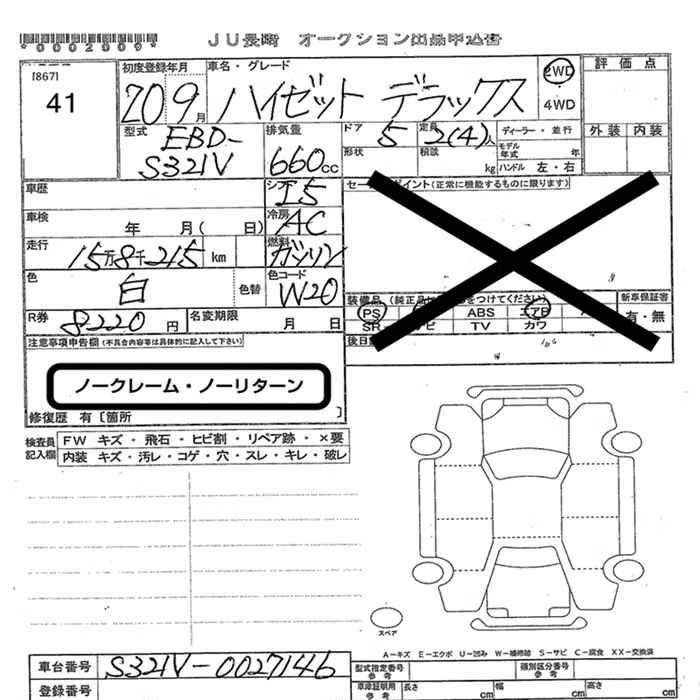 *0002009*
JU長崎 オークション出品申込書
[867]
41
初度登録年月
20 9月
車名・グレード
ハイゼット デラックス
2WD
4WD
評価点
外装 内装
型式
EBD-
S321V
排気量
660cc
ドア
5
定員
2(4)人
ディーラー・並行
形状
積載
kg
モデル
年式
年
ハンドル 左・右
車歴
シフト
I5
車検
年 月( 日)
冷房
AC
走行
15万8千215 km
燃料
ガソリン
色
白
色替
色コード
W20
R券
8220 円
名変期限
月 日
セールスポイント(正常に機能するものに限ります)
装備品
(純正品に
をつけてください)
新車保証書
PS
ABS
エアB
有・無
SR
ナビ
TV
カワ
後日
注意事項申告欄(不具合内容等は具体的に記入して下さい)
ノークレーム・ノーリターン
修復歴 有〔箇所 〕
検査員
記入欄
FW キズ・飛石・ヒビ割・リペア跡・×要
内装 キズ・汚レ・コゲ・穴・スレ・キレ・破レ
スペア
A-キズ E-エクボ U-凹み W-補修跡 S-サビ C-腐食 XX-交換済
車台番号
S321V-0027146
登録番号
型式指定番号
参考
類別区分番号
参考
車庫証明用
参考
長さ
cm
幅
cm
高さ
cm